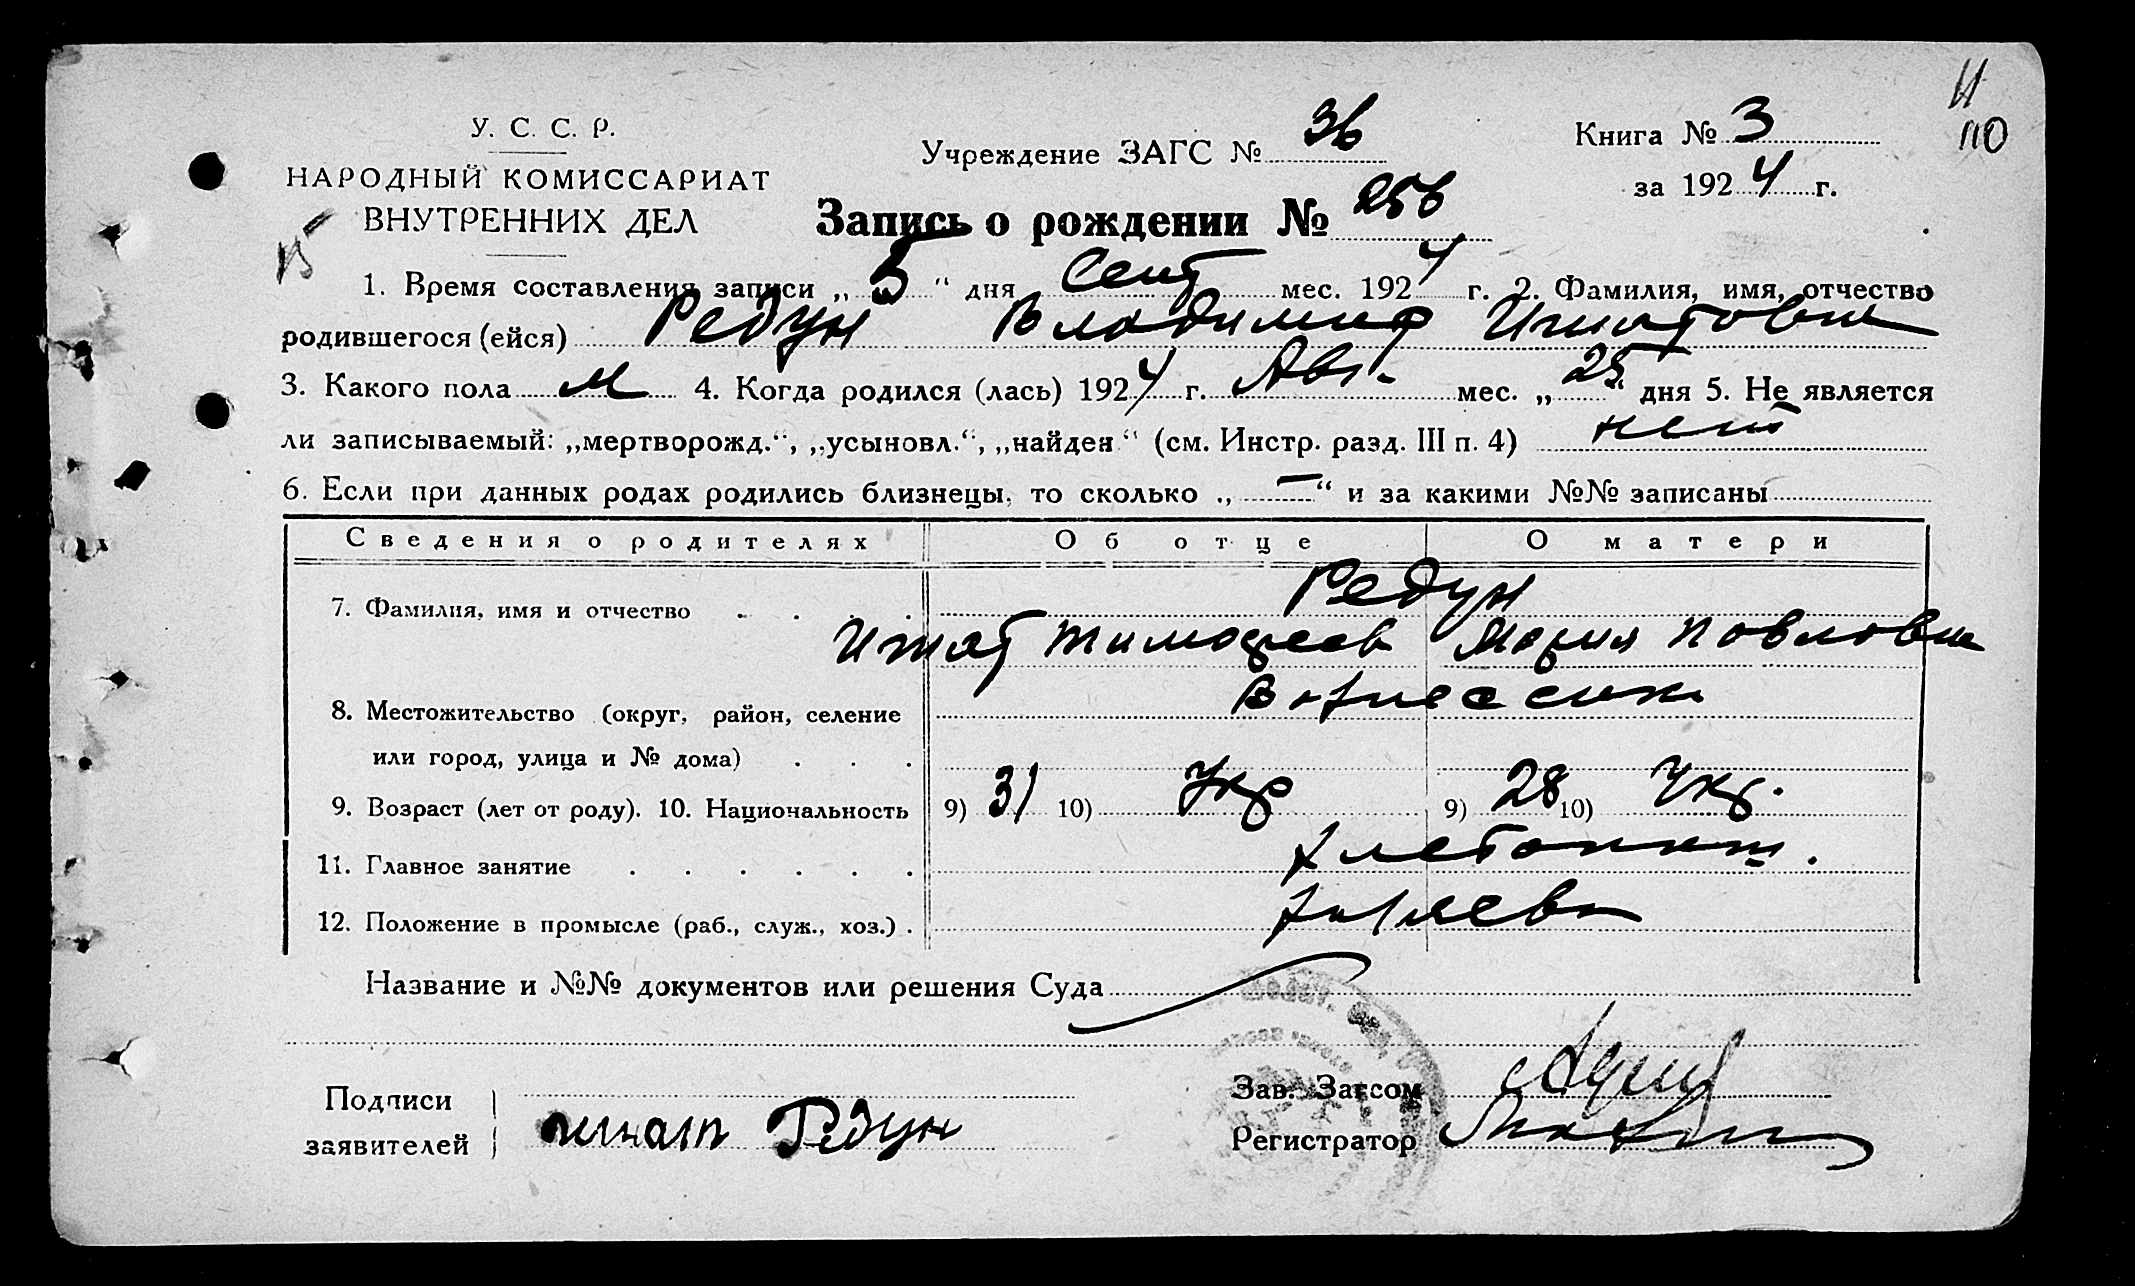 11
110
У. С. С. Р.
НАРОДНЫЙ КОМИССАРИАТ
ВНУТРЕННИХ ДЕЛ
Учреждение ЗАГС № 36
Книга № 3
за 1924 г.
Запись о рождении № 256
1. Время составления записи „ 5 " дня Сент мес. 1924 г. 2. Фамилия, имя, отчество
родившегося (ейся) Редун Владимир Игнатович
3. Какого пола м 4. Когда родился (лась) 1924 г. Авг. мес. „ 25 " дня 5. Не является
ли записываемый: „мертворожд.“, „усыновл.“, „найден“ (см. Инстр. разд. III п. 4) нет
6. Если при данных родах родились близнецы, то сколько „ — “ и за какими №№ записаны
Сведения о родителях Об отце О матери
7. Фамилия, имя и отчество Редун
Игнат Тимофеев Мария Павловна
8. Местожительство (округ, район, селение Вознесенск
или город, улица и № дома)
9. Возраст (лет от роду). 10. Национальность 9) 31 10) Укр 9) 28 10) Укр.
11. Главное занятие хлебопаш.
12. Положение в промысле (раб., служ., хоз.) хозяева
Название и №№ документов или решения Суда
Подписи
заявителей Игнат Редун
Зав. Загсом
Регистратор